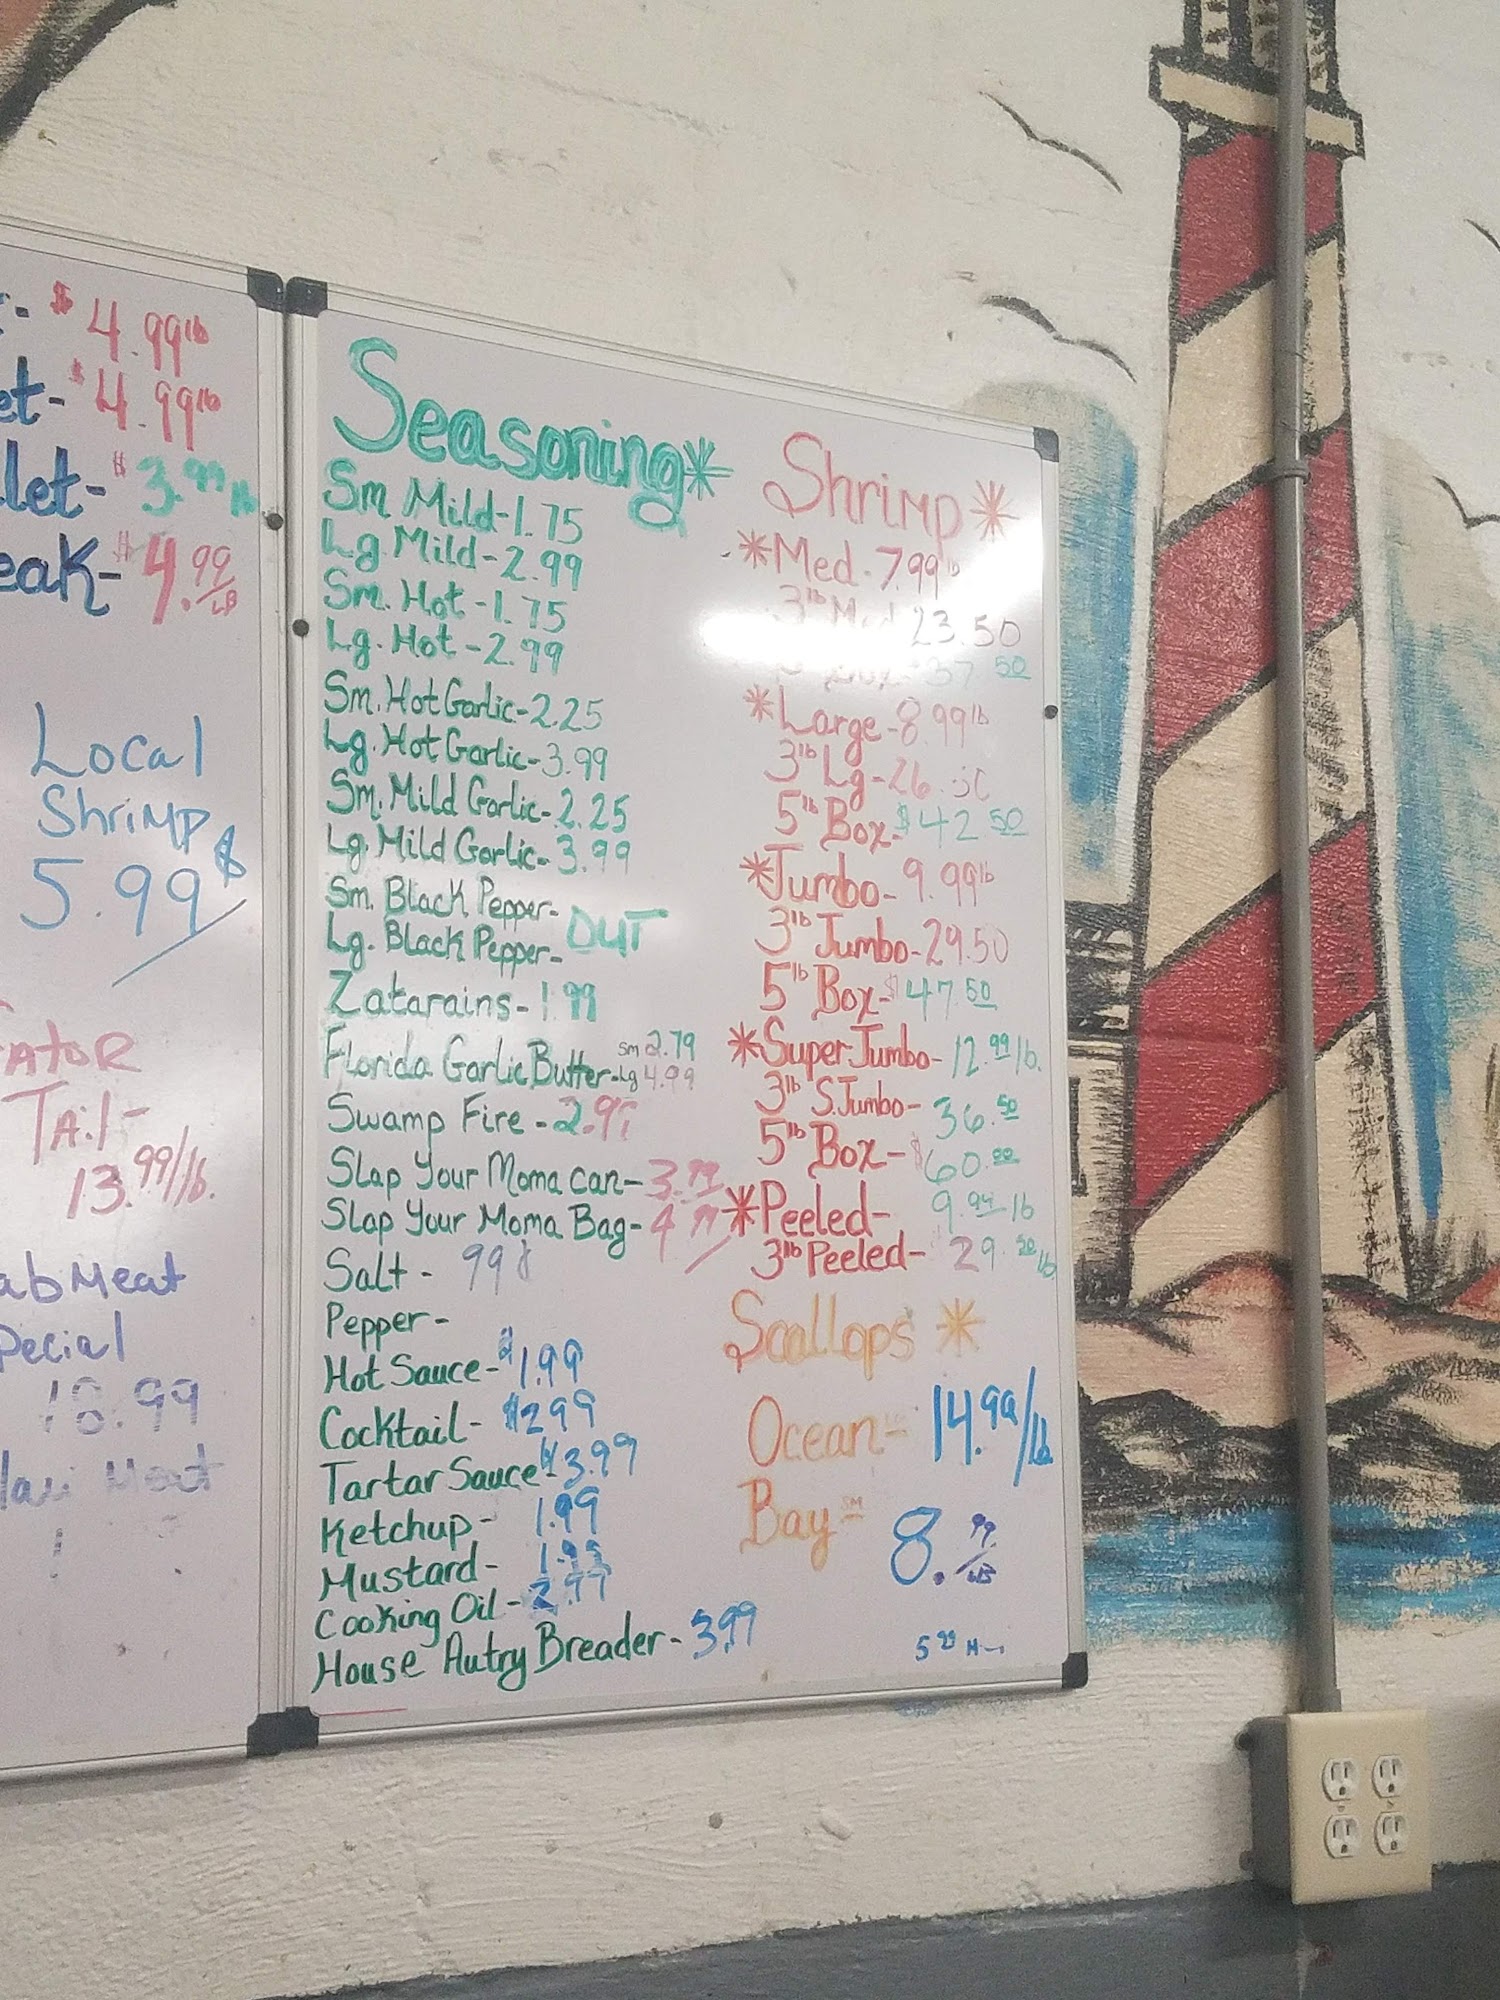 $4.99 lb
et- $4.99 lb
let- $3.99 lb
eak- $4.99 LB
Local
Shrimp
5.99 $
GATOR
TAil-
13.99/lb.
ab Meat
pecial
18.99
Seasoning*
Sm Mild-1.75
Lg. Mild-2.99
Sm. Hot-1.75
Lg. Hot-2.99
Sm. Hot Garlic-2.25
Lg. Hot Garlic-3.99
Sm. Mild Garlic-2.25
Lg. Mild Garlic-3.99
Sm. Black Pepper-
Lg. Black Pepper- OUT
Zatarains-1.99
Florida Garlic Butter- Sm 2.79
Lg 4.99
Swamp Fire-2.97
Slap Your Moma Can-3.99
Slap Your Moma Bag-4.99
Salt- 99¢
Pepper-
Hot Sauce-$1.99
Cocktail-$2.99
Tartar Sauce-$3.99
Ketchup-1.99
Mustard-
Cooking Oil-
House Autry Breader-3.99
Shrimp*
*Med-7.99 lb
3 lb Med 23.50
Box 37.50
*Large-8.99 lb
3 lb Lg-26.50
5 lb Box-$42.50
*Jumbo-9.99 lb
3 lb Jumbo-29.50
5 lb Box-$47.50
*Super Jumbo-12.99 lb.
3 lb S.Jumbo-36.50
5 lb Box-$60.00
*Peeled-9.99 lb
3 lb Peeled-29.50 lb
Scallops*
Ocean-14.99/lb
Bay- SM 8.99/LB